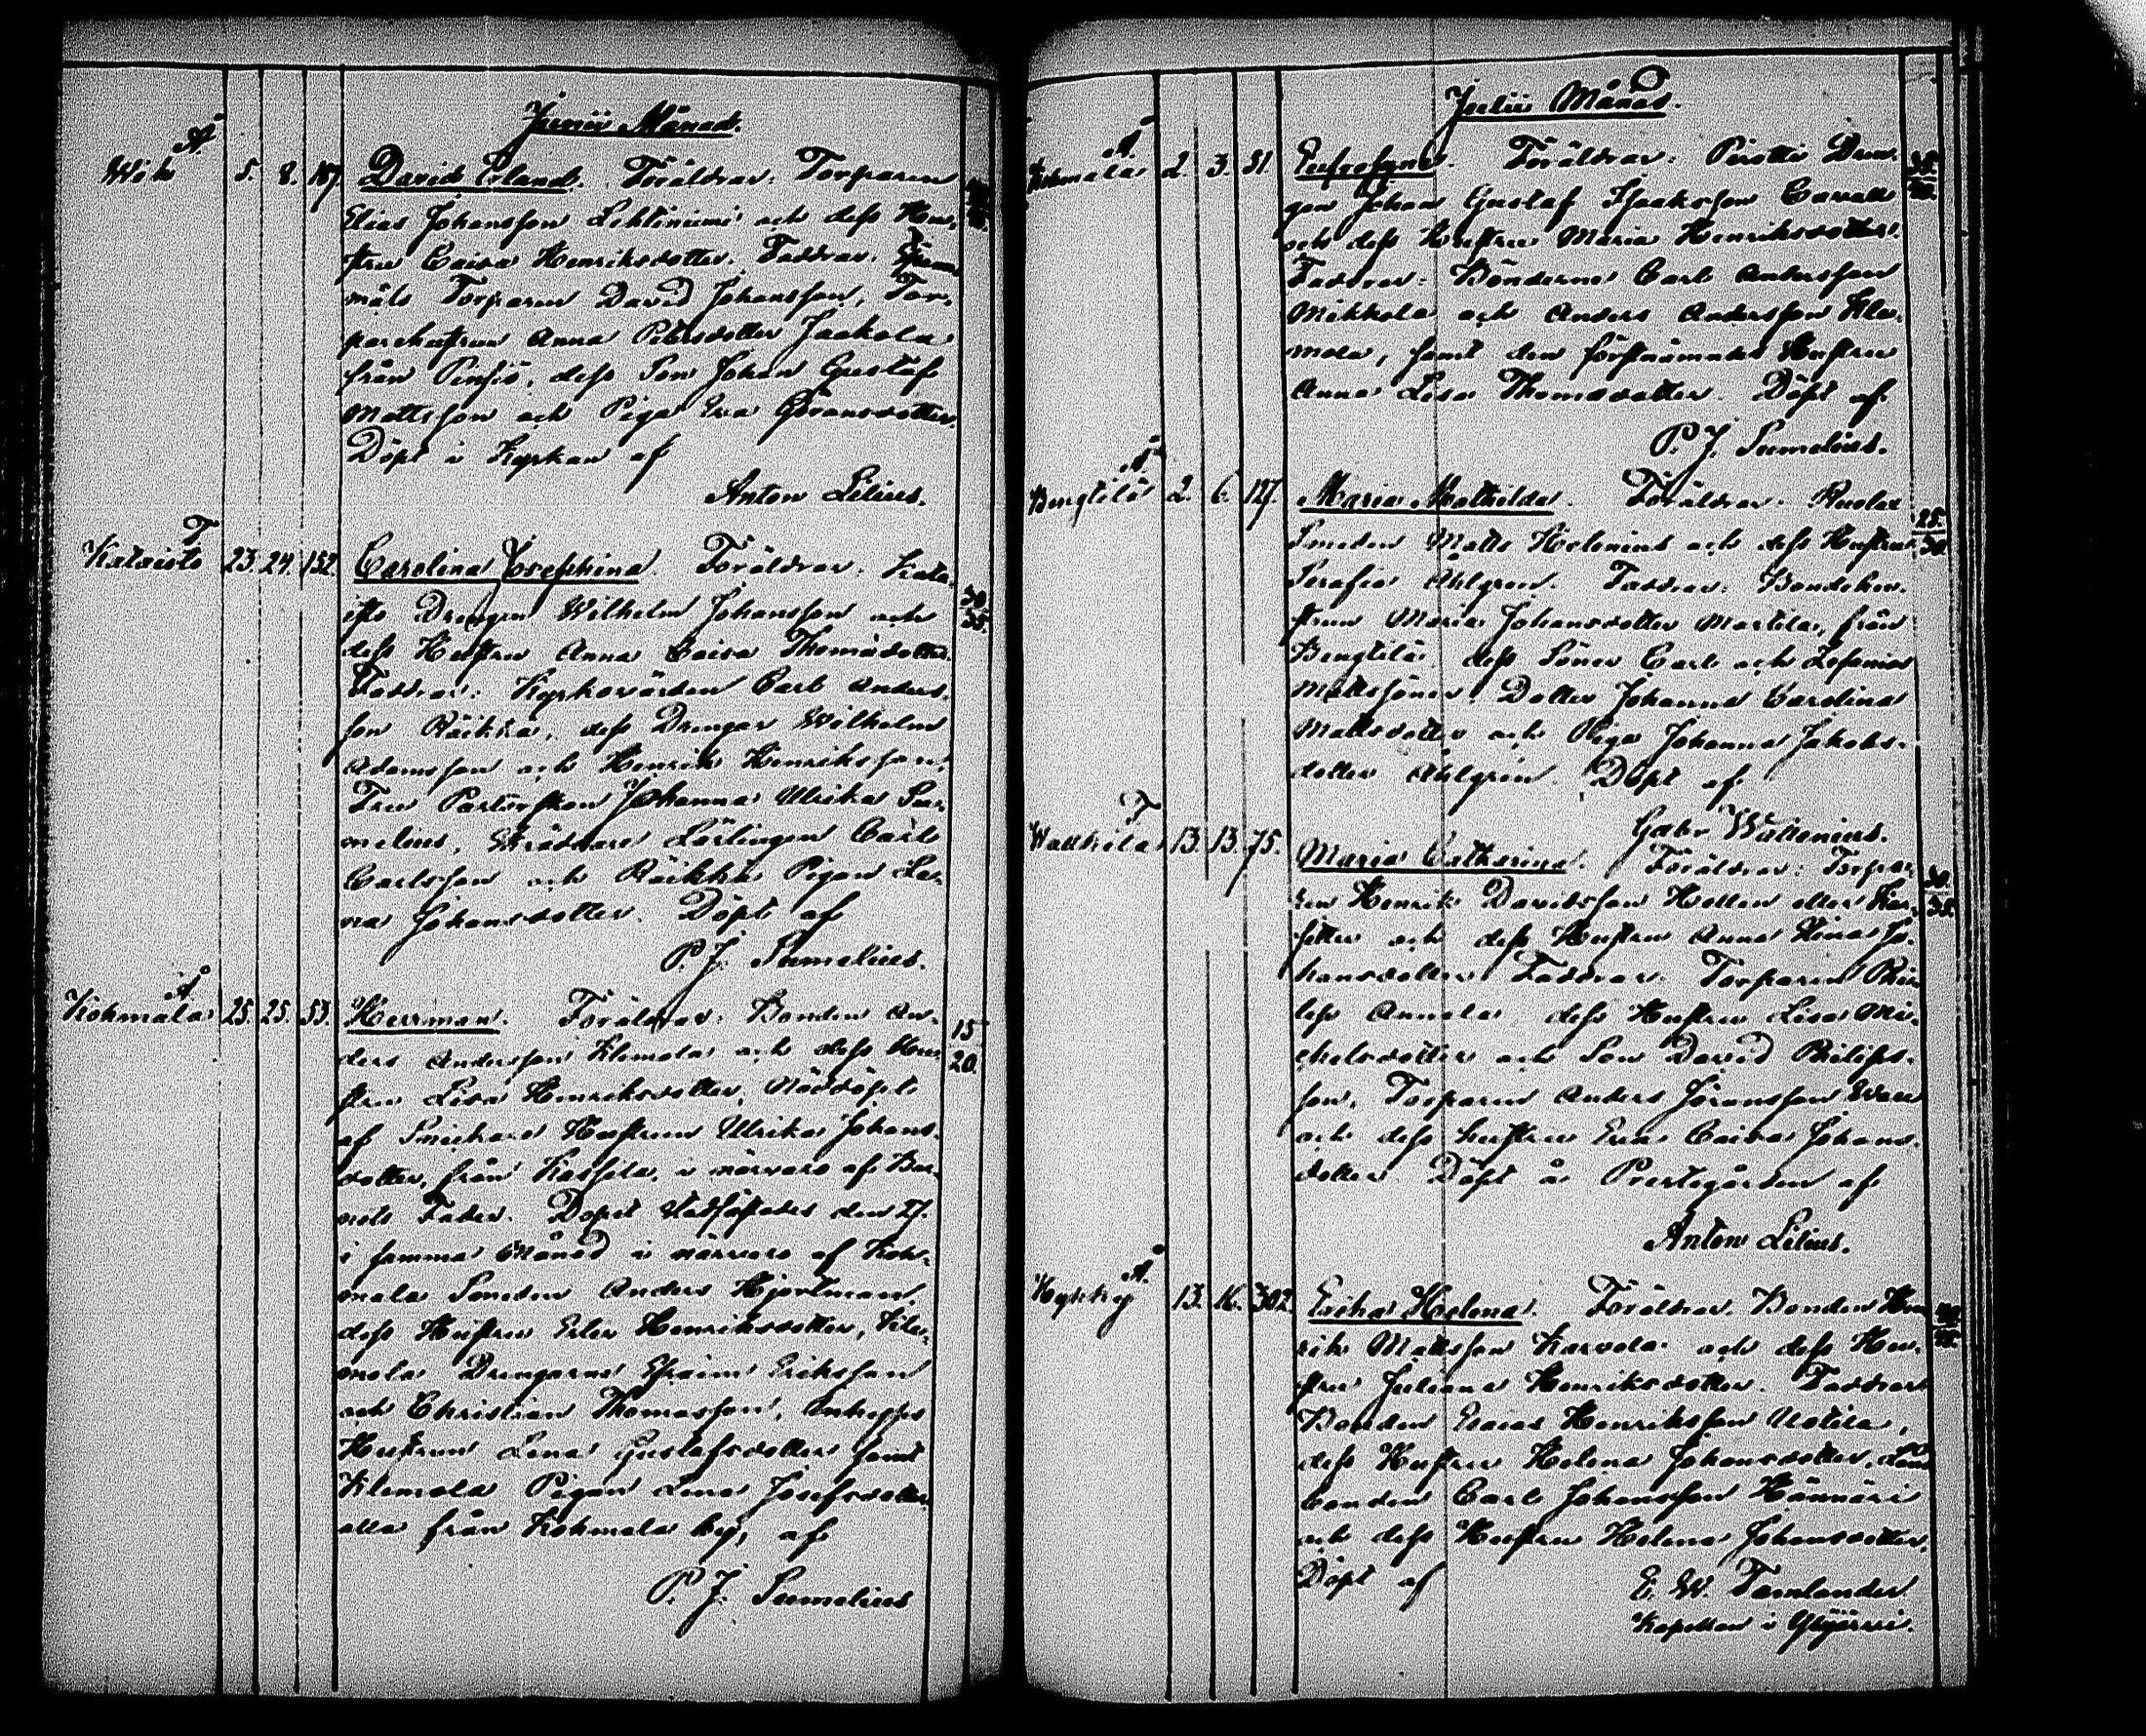 Junii Månad.
Å
Wik 5. 8. 187 David Erland. Föräldrar: Torparen
Elias Johansson Lehtiniemi och dess Hu-
stru Caisa Henriksdotter. Faddrar:
Torparen David Johansson, Tor-
parehustrun Anna Petersdotter Jaakola
från Pinsiö, dess Son Johan Gustaf
Mattsson och Piga Eva Göransdotter.
Döpt i Kyrkan af
Anton Lilius.
F
Kataisto 23. 24. 152. Carolina Josephina. Föräldrar: Kata-
isto Drengen Wilhelm Johansson och
dess Hustru Anna Caisa Thomasdotter.
Faddrar: Kyrkovärden Carl Anders-
son Räikkä, dess Drengar Wilhelm
Adamsson och Henrik Henriksson,
Fru Pastorskan Johanna Ulrika Su-
melius, Skräddare Lärlingen Carl
Carlsson och Räikkä Pigan Le-
na Johansdotter. Döpt af
P. J. Sumelius.
30.
35.
Å
Kohmala 25. 25. 53. Herrman. Föräldrar: Bonden An-
ders Andersson Klemola och dess Hu-
stru Lisa Henriksdotter, Nöddöpt
af Hustrun Ulrika Johans-
dotter, från i närvaro af Bar-
nets Fader. Dopet Stadfästades den 27.
i samma Månad i närvaro af Koh-
mala Smeden Anders Hjortman,
dess Hustru Henriksdotter, Kle-
mola Drengarne Efraim Eriksson
och Christian Thomasson, Inhyses
Hustrun Lena Gustafsdotter samt
Klemola Pigan Lena Josefsdotter
alla från Kohmala by, af
P. J. Sumelius
15
20.
Julii Månad.
Å
Kohmala 2. 3. 51. Eufrosyne. Föräldrar: Pirtti Dren-
gen Johan Gustaf Isaksson Cavall
och dess Hustru Maria Henriksdotter.
Faddrar: Bönderne Carl Andersson
Mikkola och Anders Andersson Kle-
mola, samt den förstnämndes Hustru
Anna Lisa Thomsdotter. Döpt af
P. J. Sumelius.
Å
Bengtilä 2. 6. 127. Maria Mathilda. Föräldrar:
Smeden Matts Helenius och dess Hustru
Serafia Ahlgren. Faddrar: Bondehu-
strun Maria Johansdotter Martila, från
Bengtilä, dess Söner Carl och Zefanias
Mattssöner, Dotter Johanna Carolina
Mattsdotter och Piga Johanna Jakobs-
dotter Ahlgren. Döpt af
Gabr Wallenius.
25.
30.
F
13. 13. 75. Maria Catharina. Föräldrar: Torpa-
ren Henrik Davidsson Hellen eller
och dess Hustru Anna Stina Jo-
hansdotter. Faddrar: Torparen
Annala dess Hustru Lisa Mi-
chelsdotter och Son David Philips-
son, Torparen Anders Göransson
och dess hustru Eva Caisa Johans-
dotter. Döpt å Prestegården af
Anton Lilius.
30.
35.
Å
Kyrkby 13. 16. 302. Erika Helena. Föräldrar: Bonden Hen-
rik Mattsson Karvola och dess Hu-
stru Juliana Henriksdotter. Faddrar
Bonden Henriksson Uotila,
dess Hustru Helena Johansdotter,
bonden Carl Johansson Hännäri
och dess Hustru Helena Johansdotter.
Döpt af
E. W. Tamlander
Kapellan i Ylöjärvi.